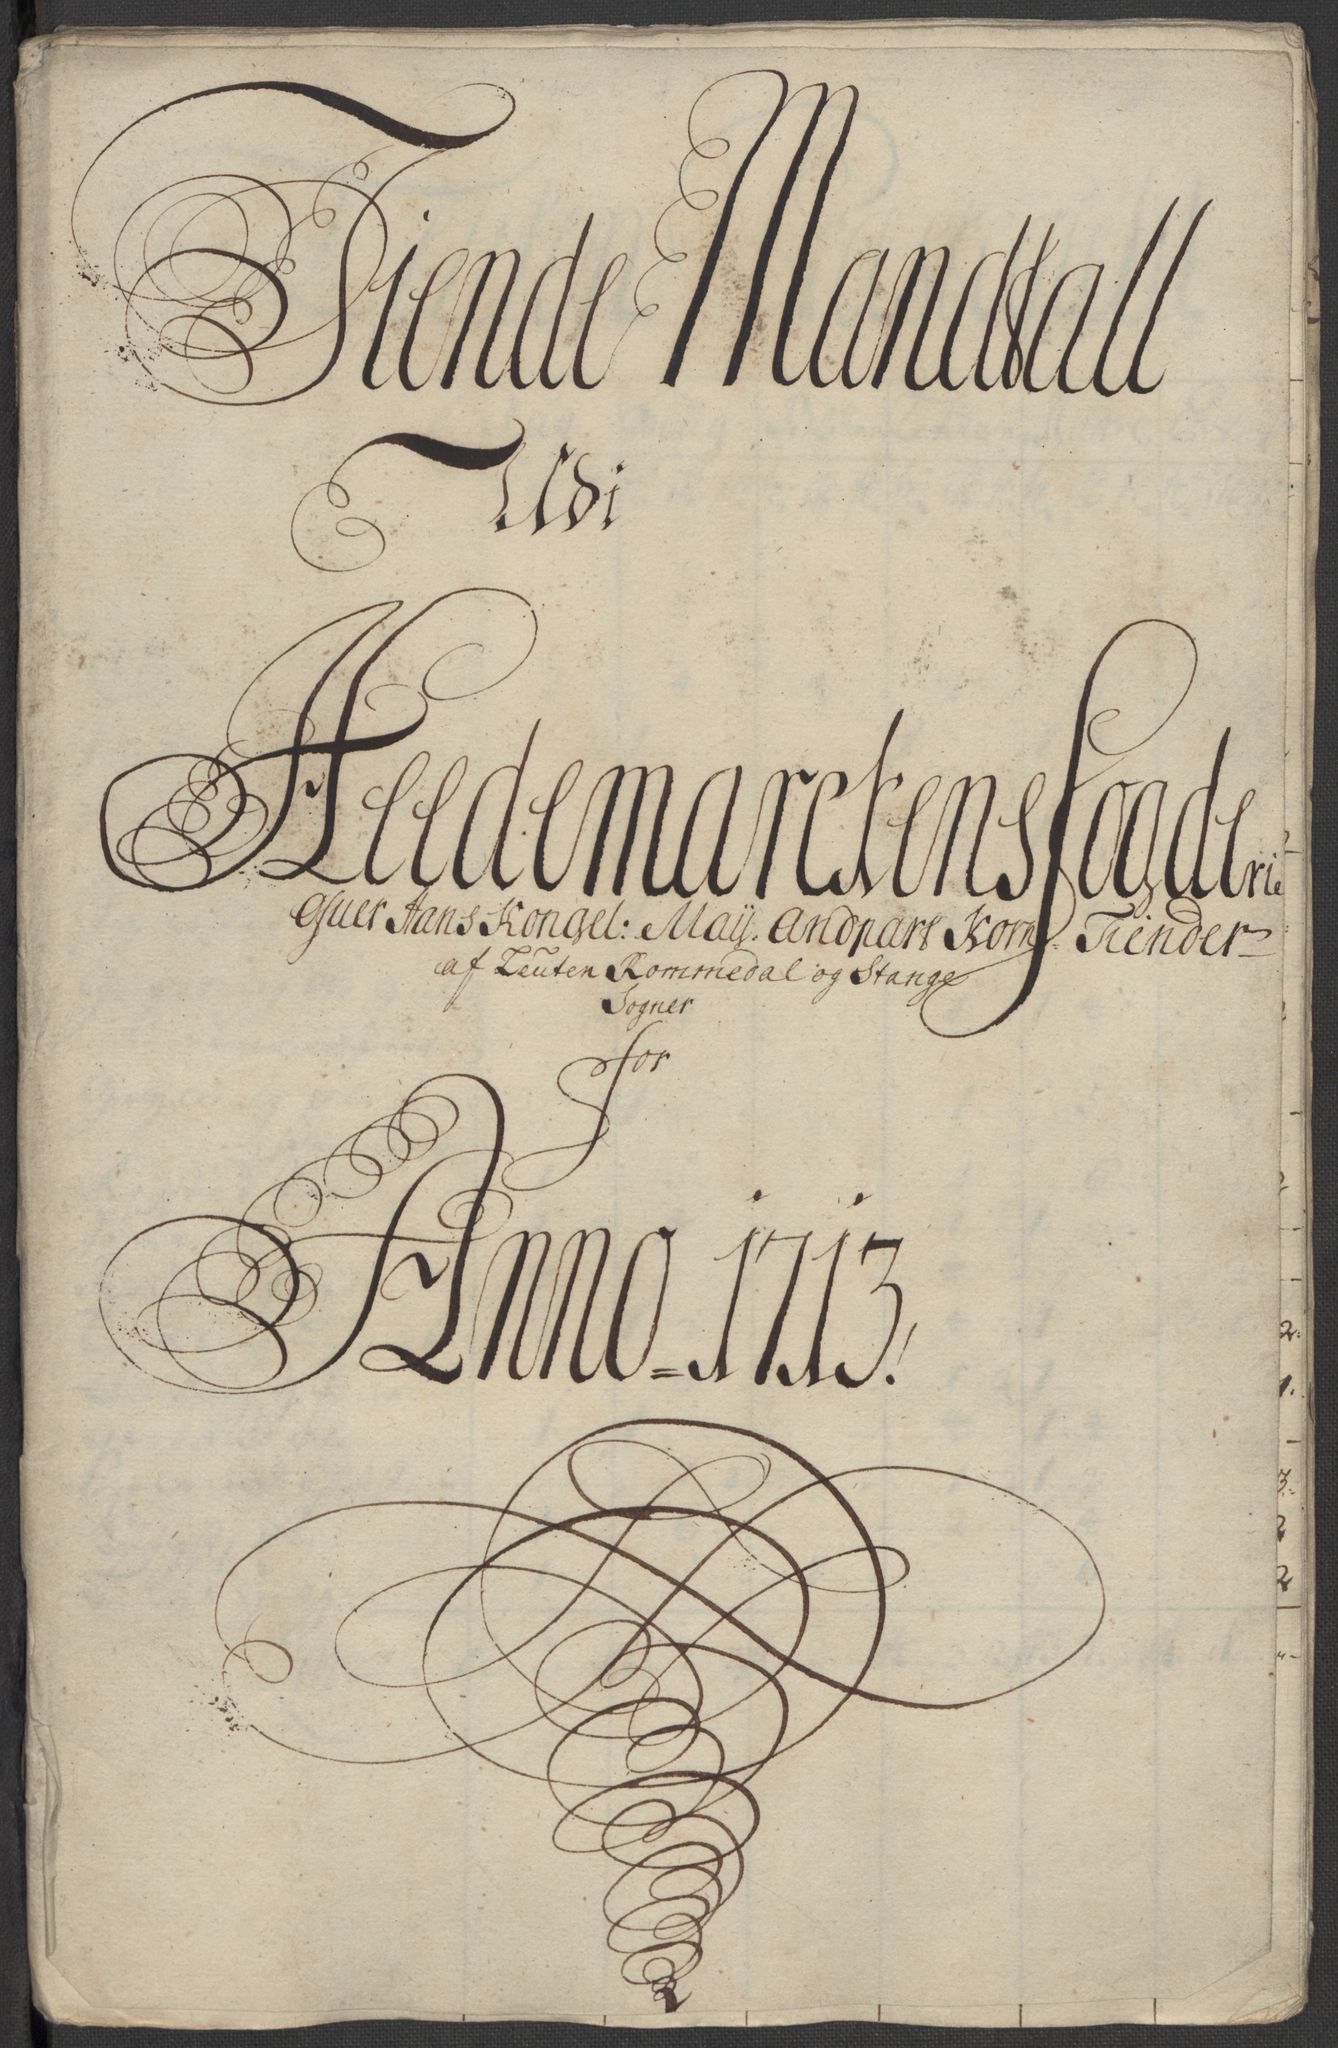 Tiende Mandtall
Udi
Heedemarckens fogderie
Ofuer Hans Kongel: Maÿ. Andpart Korn Tiender
af Leuten Rommedal og Stange
Sogner
for
Anno = 1713.
2:
1.
3.
2
2